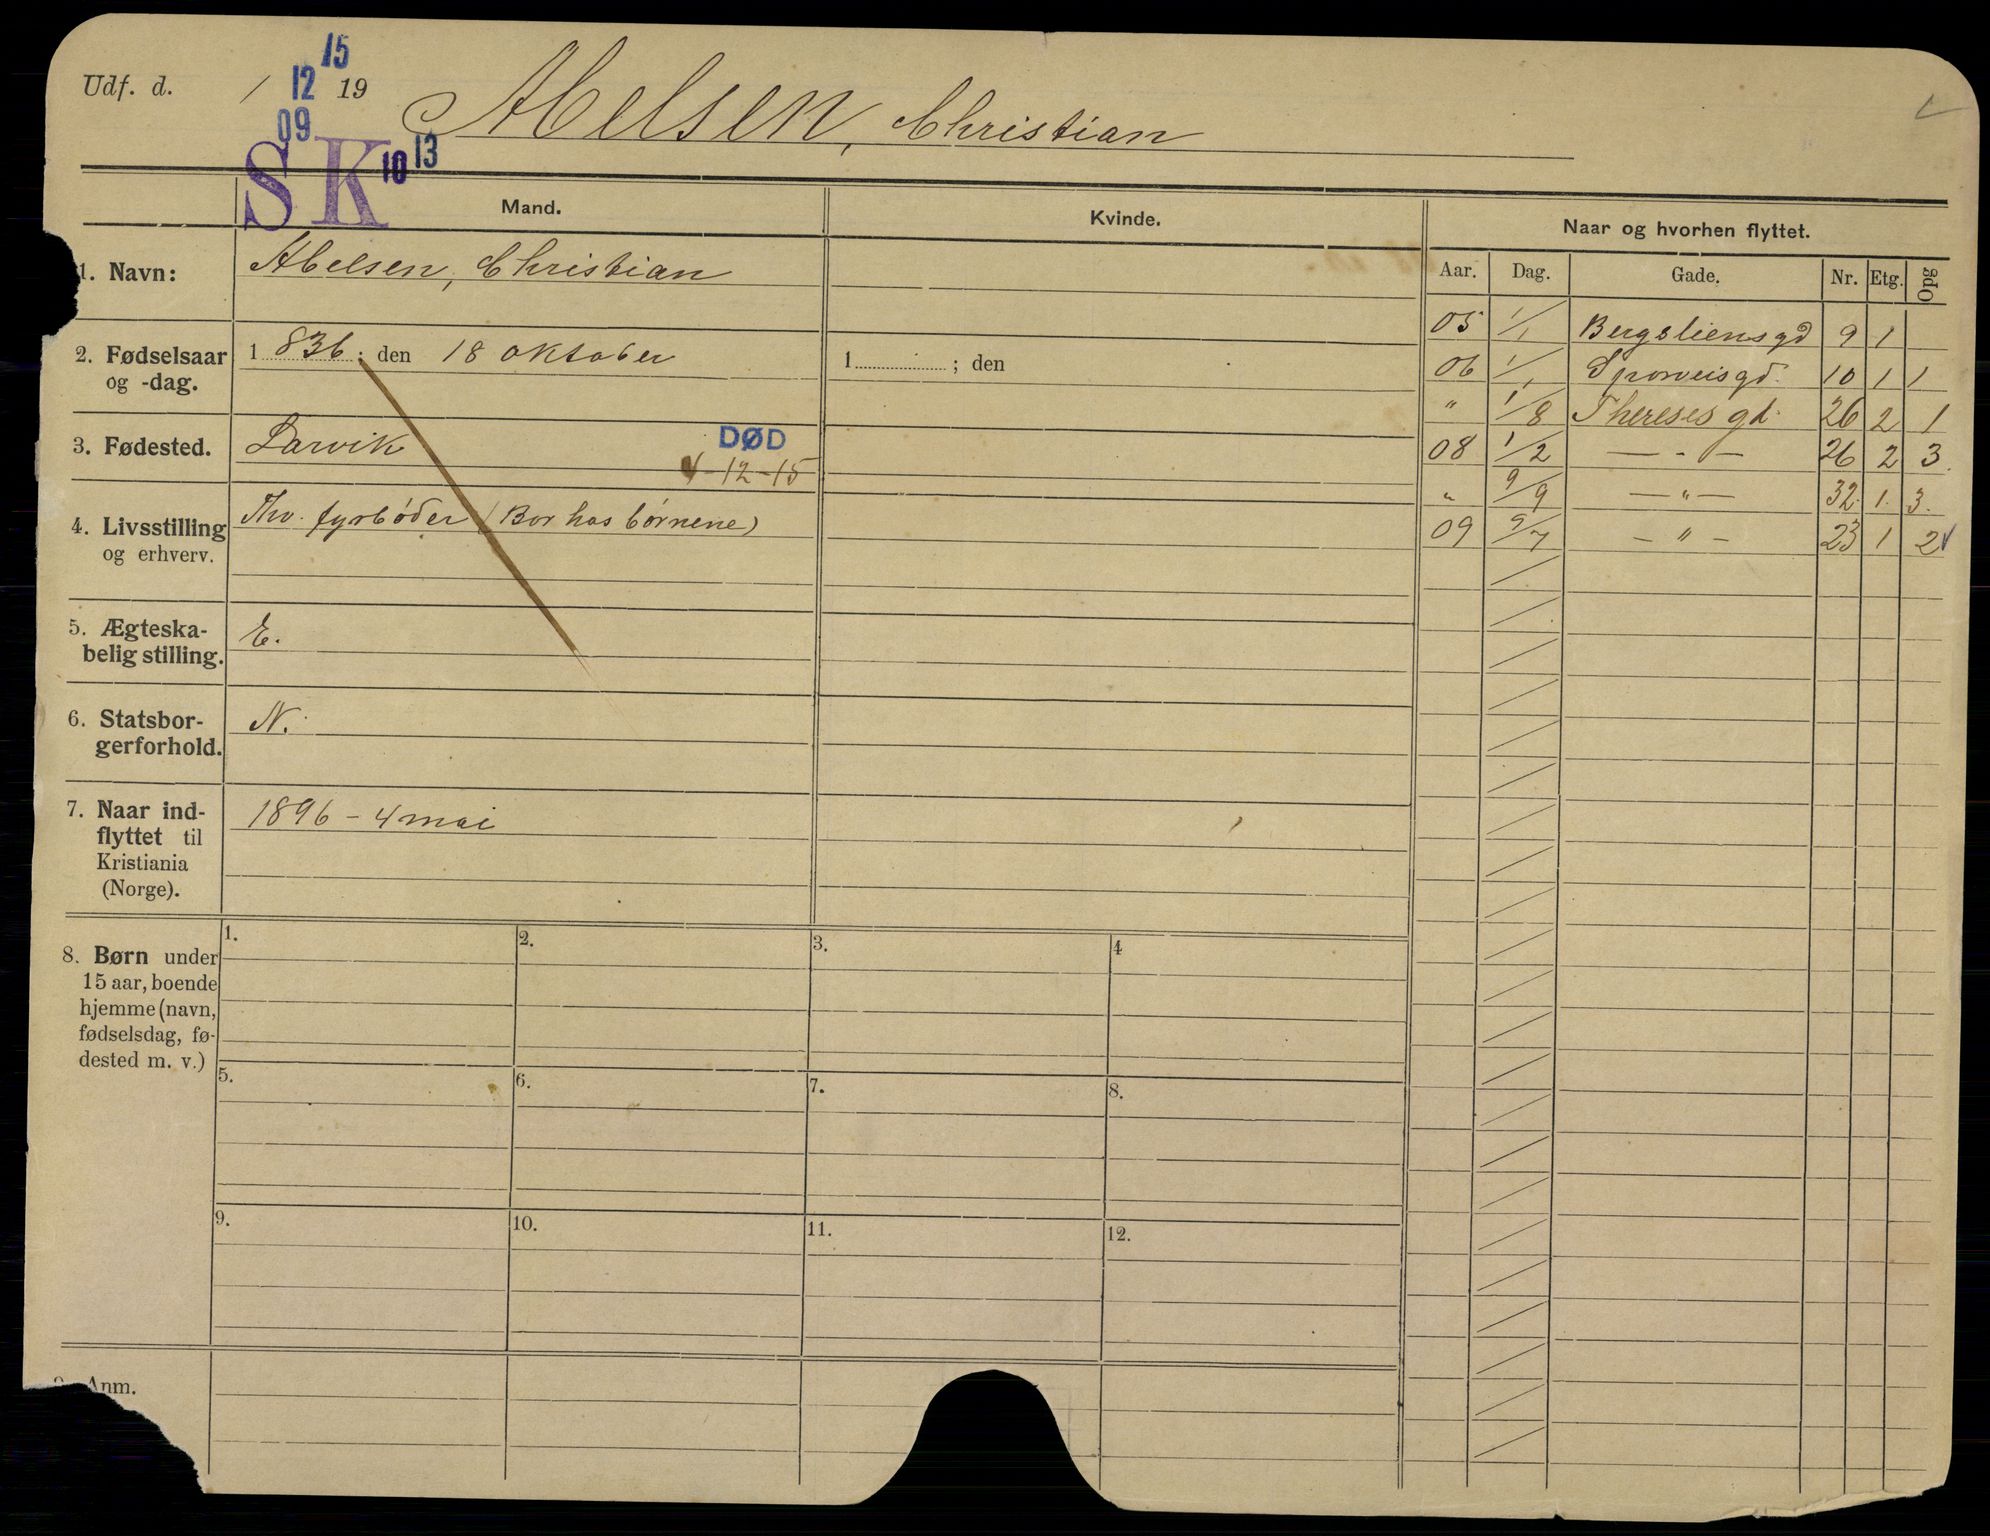 15
Udf. d. / 12 19 Abelsen, Christian
09
SK 10 13
Mand. Kvinde. Naar og hvorhen flyttet.
Aar. Dag. Gade. Nr. Etg. Opg
1. Navn: Abelsen, Christian
2. Fødselsaar og -dag. 1 836 ; den 18 oktober 1 ; den
3. Fødested. Larvik
DØD
-12-15
4. Livsstilling og erhverv. Fhv. fyrbøder (Bor hos børnene)
5. Ægteska-
belig stilling. E.
6. Statsbor-
gerforhold. N.
7. Naar ind-
flyttet til
Kristiania
(Norge). 1896 - 4 mai
05 1/1 Bergsliensgd 9 1
06 1/1 Sporveisgd. 10 1 1
" 1/8 Thereses gd. 26 2 1
08 1/2 — " — 26 2 3.
" 9/9 — " — 32. 1. 3.
09 9/7 — " — 23 1 2
8. Børn under
15 aar, boende
hjemme (navn,
fødselsdag, fø-
dested m. v.)
1. 2. 3. 4
5. 6. 7. 8.
9. 10. 11. 12.
Anm.